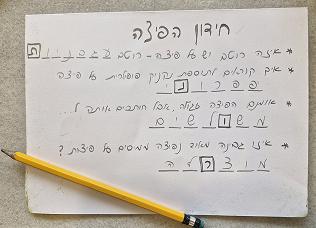 חידון הפיצה
* איזה רוטב יש על פיצה - רוטב עגבניות
* איך קוראים לתוספת נקניק פופולרית על פיצה
פפרוני
* אומנם הפיצה עגולה, אבל חותכים אותה ל...
משולשים
* איזו גבינה מאוד נפוצה ממיסים על פיצות?
מוצרלה